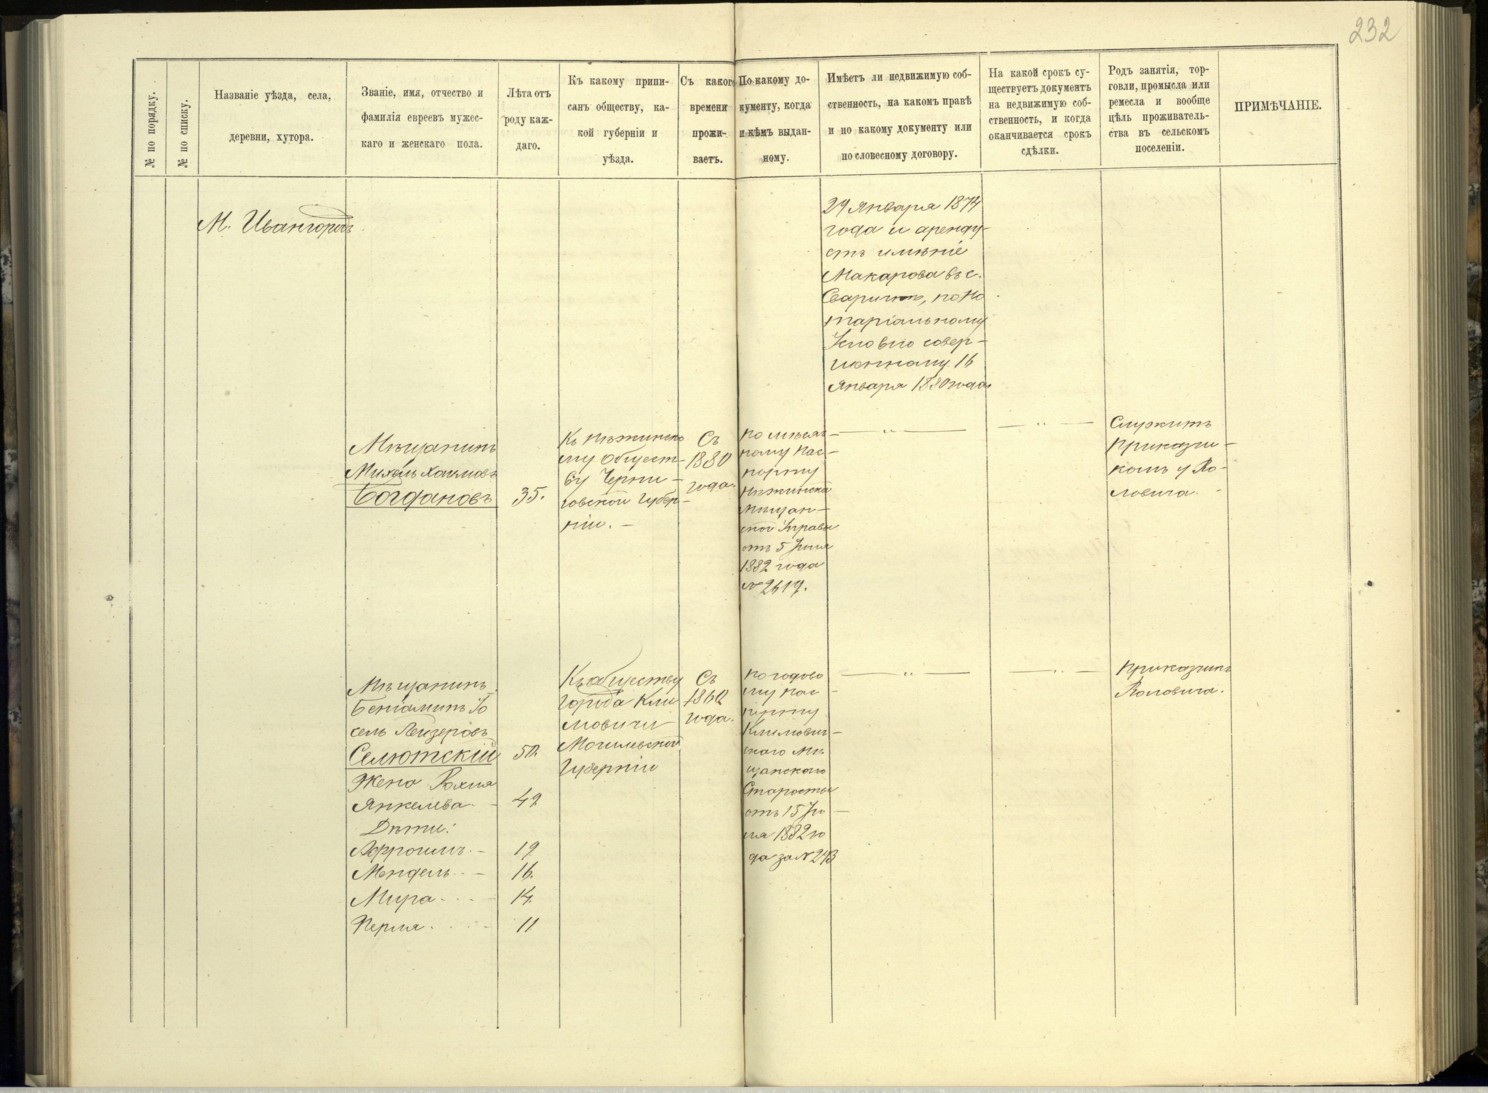 232
№ по порядку.
№ по списку.
Названіе уѣзда, села,
деревни, хутора.
Званіе, имя, отчество и
фамилія евреевъ мужес-
каго и женскаго пола.
Лѣта отъ
роду каж-
даго.
Къ какому припи-
санъ обществу, ка-
кой губерніи и
уѣзда.
Съ какого
времени
прожи-
ваетъ.
По какому до-
кументу, когда
и кѣмъ выдан-
ному.
Имѣетъ ли недвижимую соб-
ственность, на какомъ правѣ
и по какому документу или
по словесному договору.
На какой срокъ су-
ществуетъ документъ
на недвижимую соб-
ственность, и когда
оканчивается срокъ
сдѣлки.
Родъ занятія, тор-
говли, промысла или
ремесла и вообще
цѣль проживатель-
ства въ сельскомъ
поселеніи.
ПРИМѢЧАНІЕ.
М. Ивангородъ
января 1874
года и аренду-
етъ имѣніе
Макарова въ с.
по но
таріальному
совер-
шенному 16
Января 1880 года
Мѣщанинъ
Хаимовъ
Богдановъ
35.
Къ Нѣжинско
му общест-
ву Черни-
говской Губер-
ніи. —
Съ
1880
года.
По
ному пас-
порту
Нѣжинской
Мѣщан-
ской Управы
отъ 5 Іюля
1882 года
Служитъ
Приказчи-
комъ у По-
ловича.
Мѣщанинъ
Веніаминъ Іо
сель Лейзеровъ
Селютскій
Жена Рохля
Янкелева - 42
Дѣти:
19
Мендель - 16.
Мира - 14.
Перля - 11
Къ обществу
города Кли
мовичи
Могилевской
Губерніи
Съ
года.
По годово
му пас-
порту
Климович-
скаго Мѣ
щанскаго
Старосты
отъ 15 Ію
ля 1882 го
да за №
Приказчикъ
Половича.